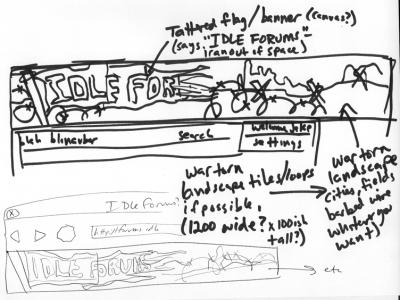 Tattered flag/banner (canvas?)
(says "IDLE FORUMS"-
i ran out of space)
IDLE FOR
blah blinavbar search
welcome
settings
war torn
landscape tiles/loops
if possible.
(1200 wide? x 100ish
tall?)
war torn
landscape
cities, fields
barbed wire
whatever you
want)
(x) Idle Forums?
http://forums.idle
IDLE FORUMS
→ etc